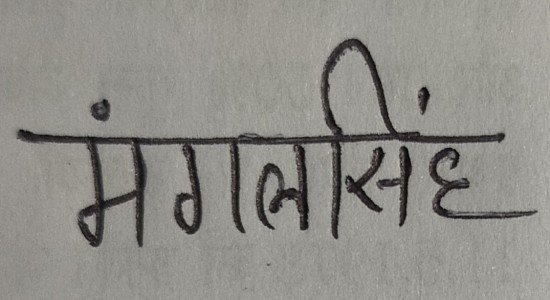 मंगलसिंह